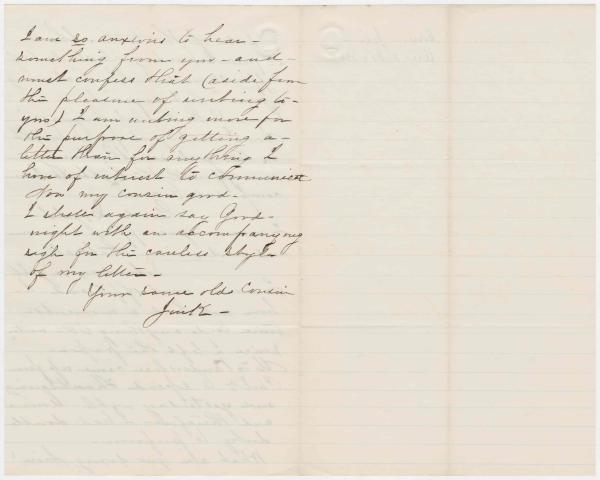 I am so anxious to hear -
something from you - and -
must confess that (aside from
the pleasure of writing to -
you) I am writing more for
the purpose of getting a -
letter than for anything I
have of interest to communicate
Now my cousin good -
I shall again say Good -
night with an accompanying
sigh for the careless style
of my letter -
Your same old Cousin